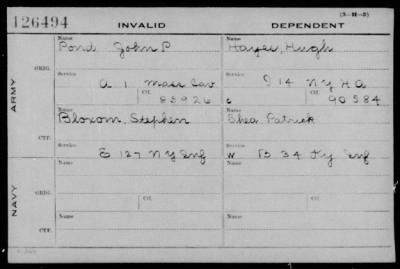 126494 INVALID DEPENDENT (3-H-5)
Name Name
Pond John P Hayes, Hugh
ORIG. Service Service
A 1 Mass Cav I 14 N Y H A
Ctf. Ctf.
85926 C 90584
ARMY
Name Name
Bloxom, Stephen Shea Patrick
CTF. Service Service
E 127 N Y Inf W B 34 Ky Inf
Name Name
ORIG. Service Ctf. Service Ctf.
NAVY
Name Name
CTF. Service Service